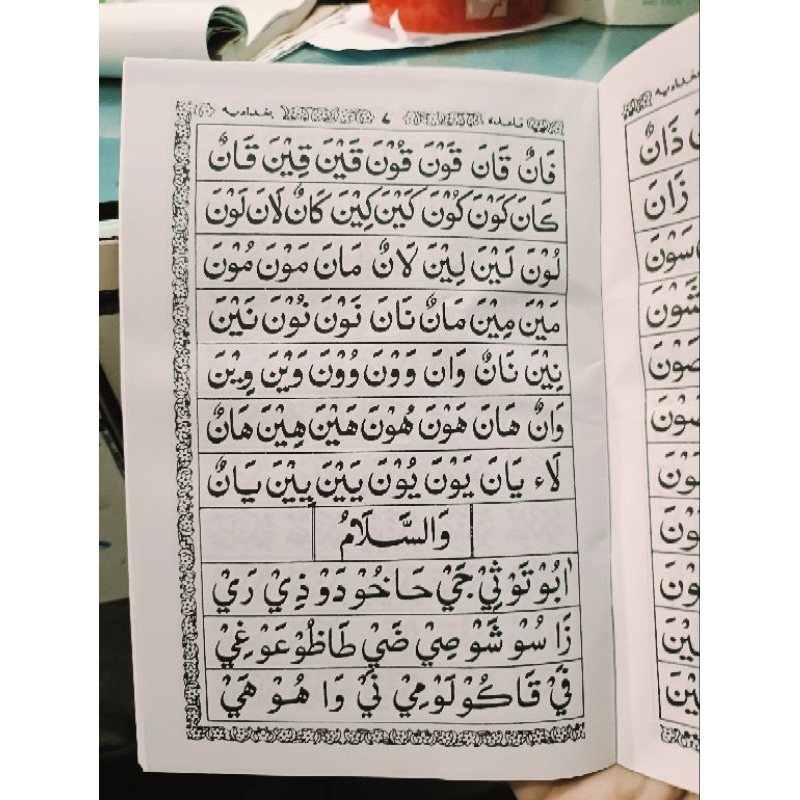 قاعده ٨ بغداديه
فَانٌ قَانَ قَوْنَ قُوْنَ قَيْنَ قِيْنَ قَانٌ
كَانَ كَوْنَ كُوْنَ كَيْنَ كِيْنَ كَانٌ لَانَ لَوْنَ
لُوْنَ لَيْنَ لِيْنَ لَانٌ مَانَ مَوْنَ مُوْنَ
مَيْنَ مِيْنَ مَانٌ نَانَ نَوْنَ نُوْنَ نَيْنَ
نِيْنَ نَانٌ وَانَ وَوْنَ وُوْنَ وَيْنَ وِيْنَ
وَانٌ هَانَ هَوْنَ هُوْنَ هَيْنَ هِيْنَ هَانٌ
لَاء يَانَ يَوْنَ يُوْنَ يَيْنَ يِيْنَ يَانٌ
وَالسَّلَامُ
اَبُوْ تَوْ ثِيْ جَيْ حَا خُوْ دَوْ ذِيْ رَيْ
زَا سُوْ شَوْ صِيْ ضَيْ طَا ظُوْ عَوْ غِيْ
فَيْ قَا كُوْ لَوْ مِيْ نَيْ وَا هُوْ هَيْ
ذَانٌ
زَانَ
سَوْنَ
شَوْنَ